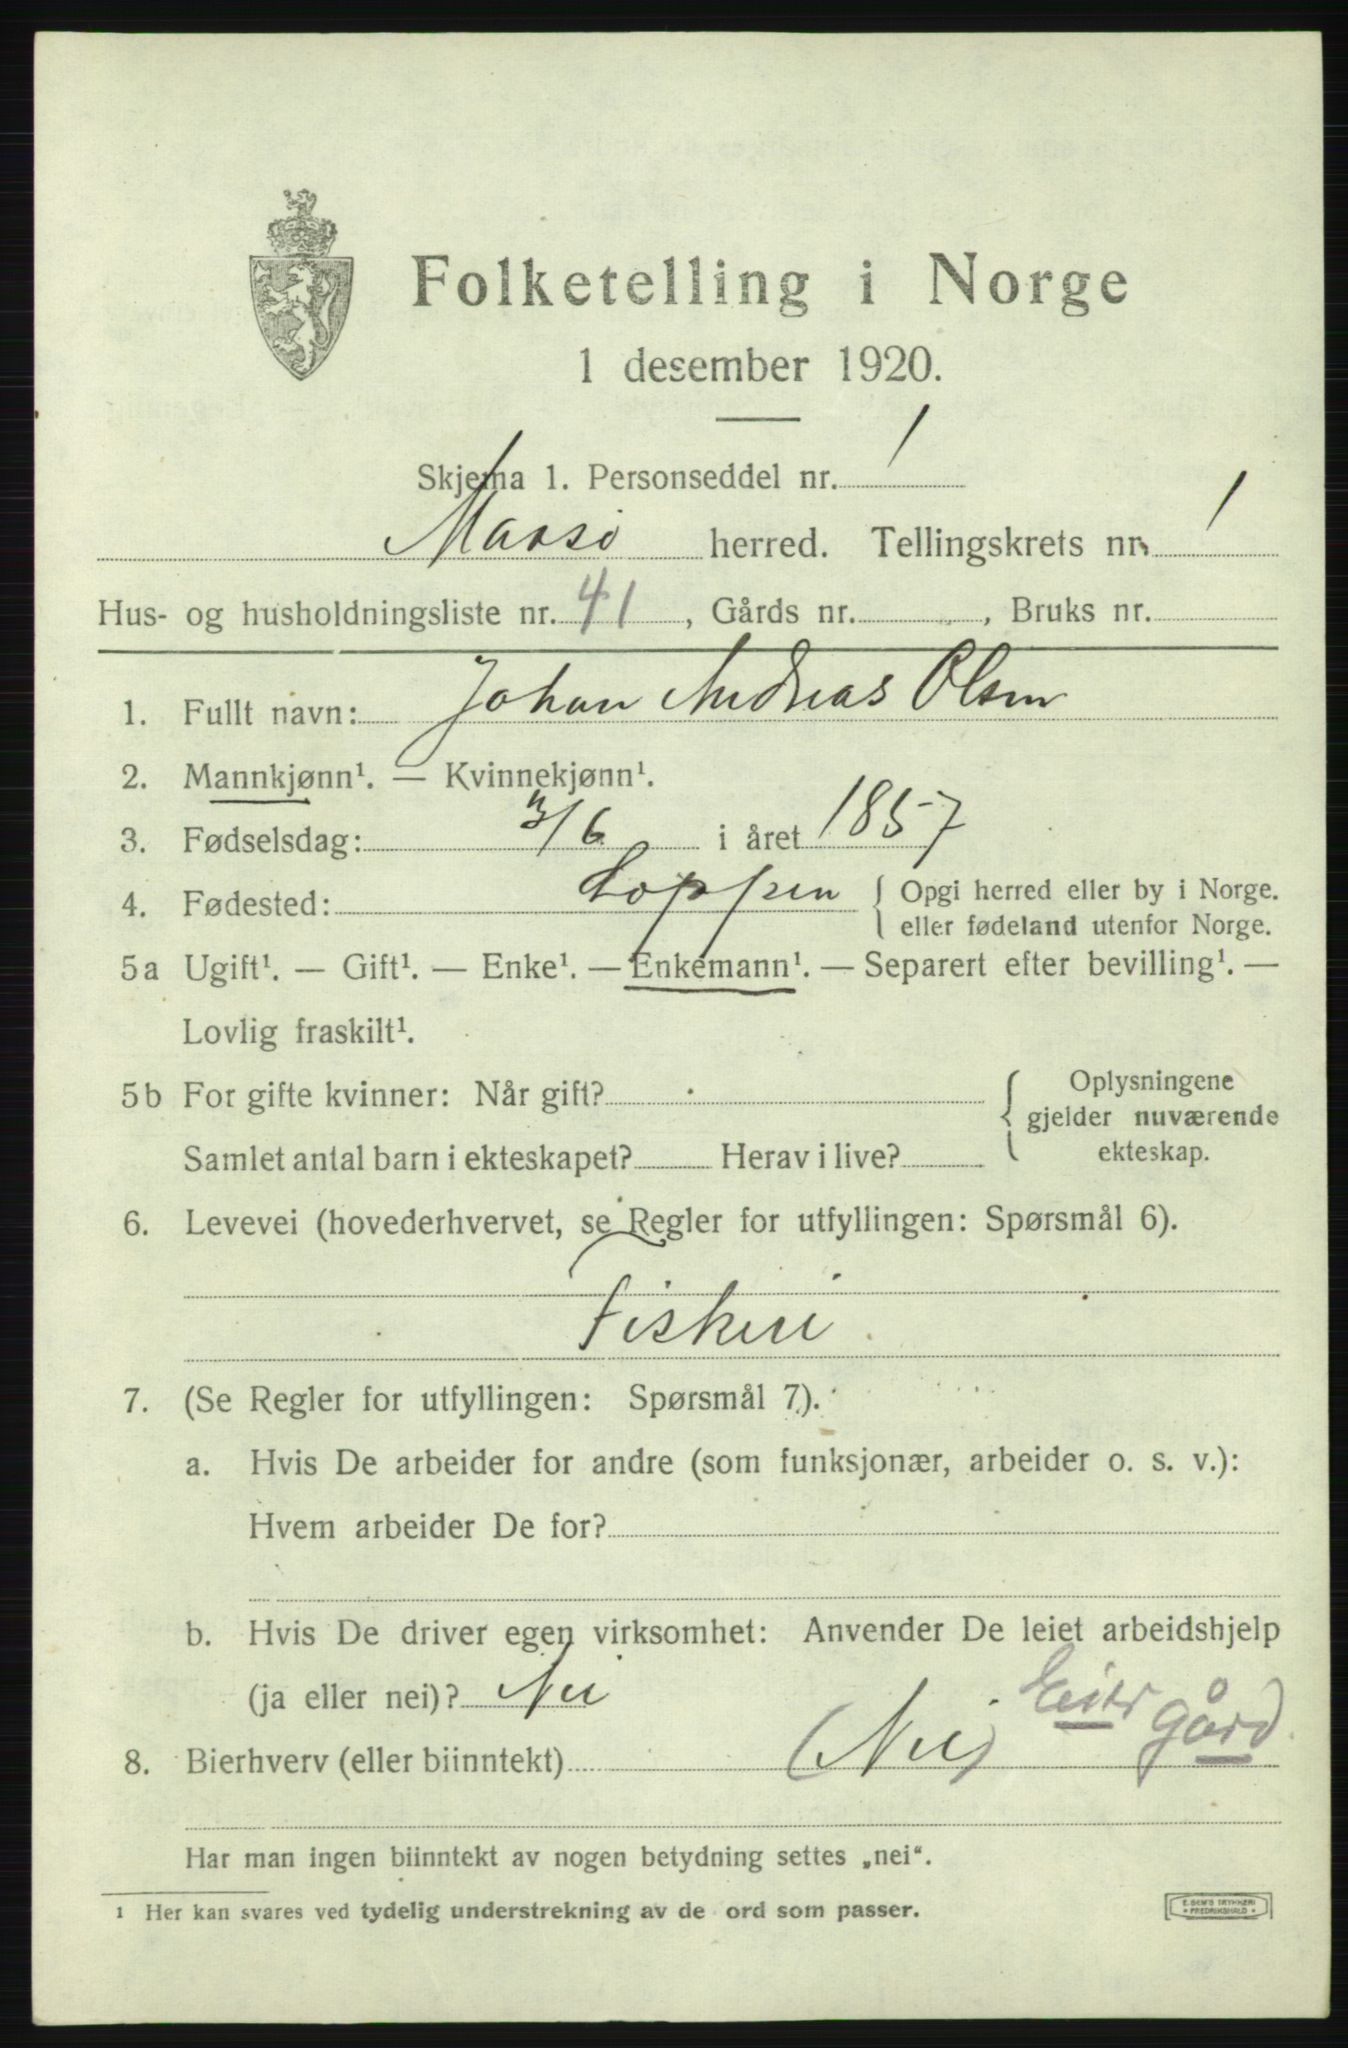 Folketelling i Norge
1 desember 1920.
Skjema 1. Personseddel nr. 1
Maasö herred. Tellingskrets nr. 1
Hus- og husholdningsliste nr. 41, Gårds nr. , Bruks nr.
1. Fullt navn: Johan Andreas Olsen
2. Mannkjønn¹. — Kvinnekjønn¹.
3. Fødselsdag: 3/6 i året 1857
4. Fødested: Loppen { Opgi herred eller by i Norge.
eller fødeland utenfor Norge.
5a Ugift¹. — Gift¹. — Enke¹. — Enkemann¹. — Separert efter bevilling¹. —
Lovlig fraskilt¹.
5b For gifte kvinner: Når gift? { Oplysningene
gjelder nuværende
Samlet antal barn i ekteskapet? Herav i live? ekteskap.
6. Levevei (hovederhvervet, se Regler for utfyllingen: Spørsmål 6).
Fiskeri
7. (Se Regler for utfyllingen: Spørsmål 7).
a. Hvis De arbeider for andre (som funksjonær, arbeider o. s. v.):
Hvem arbeider De for?
b. Hvis De driver egen virksomhet: Anvender De leiet arbeidshjelp
(ja eller nei)? Nei
gård
8. Bierhverv (eller biinntekt) (Nei)
Har man ingen biinntekt av nogen betydning settes „nei".
1 Her kan svares ved tydelig understrekning av de ord som passer.
E. SEM'S TRYKKERI
* FREDRIKSHALD *